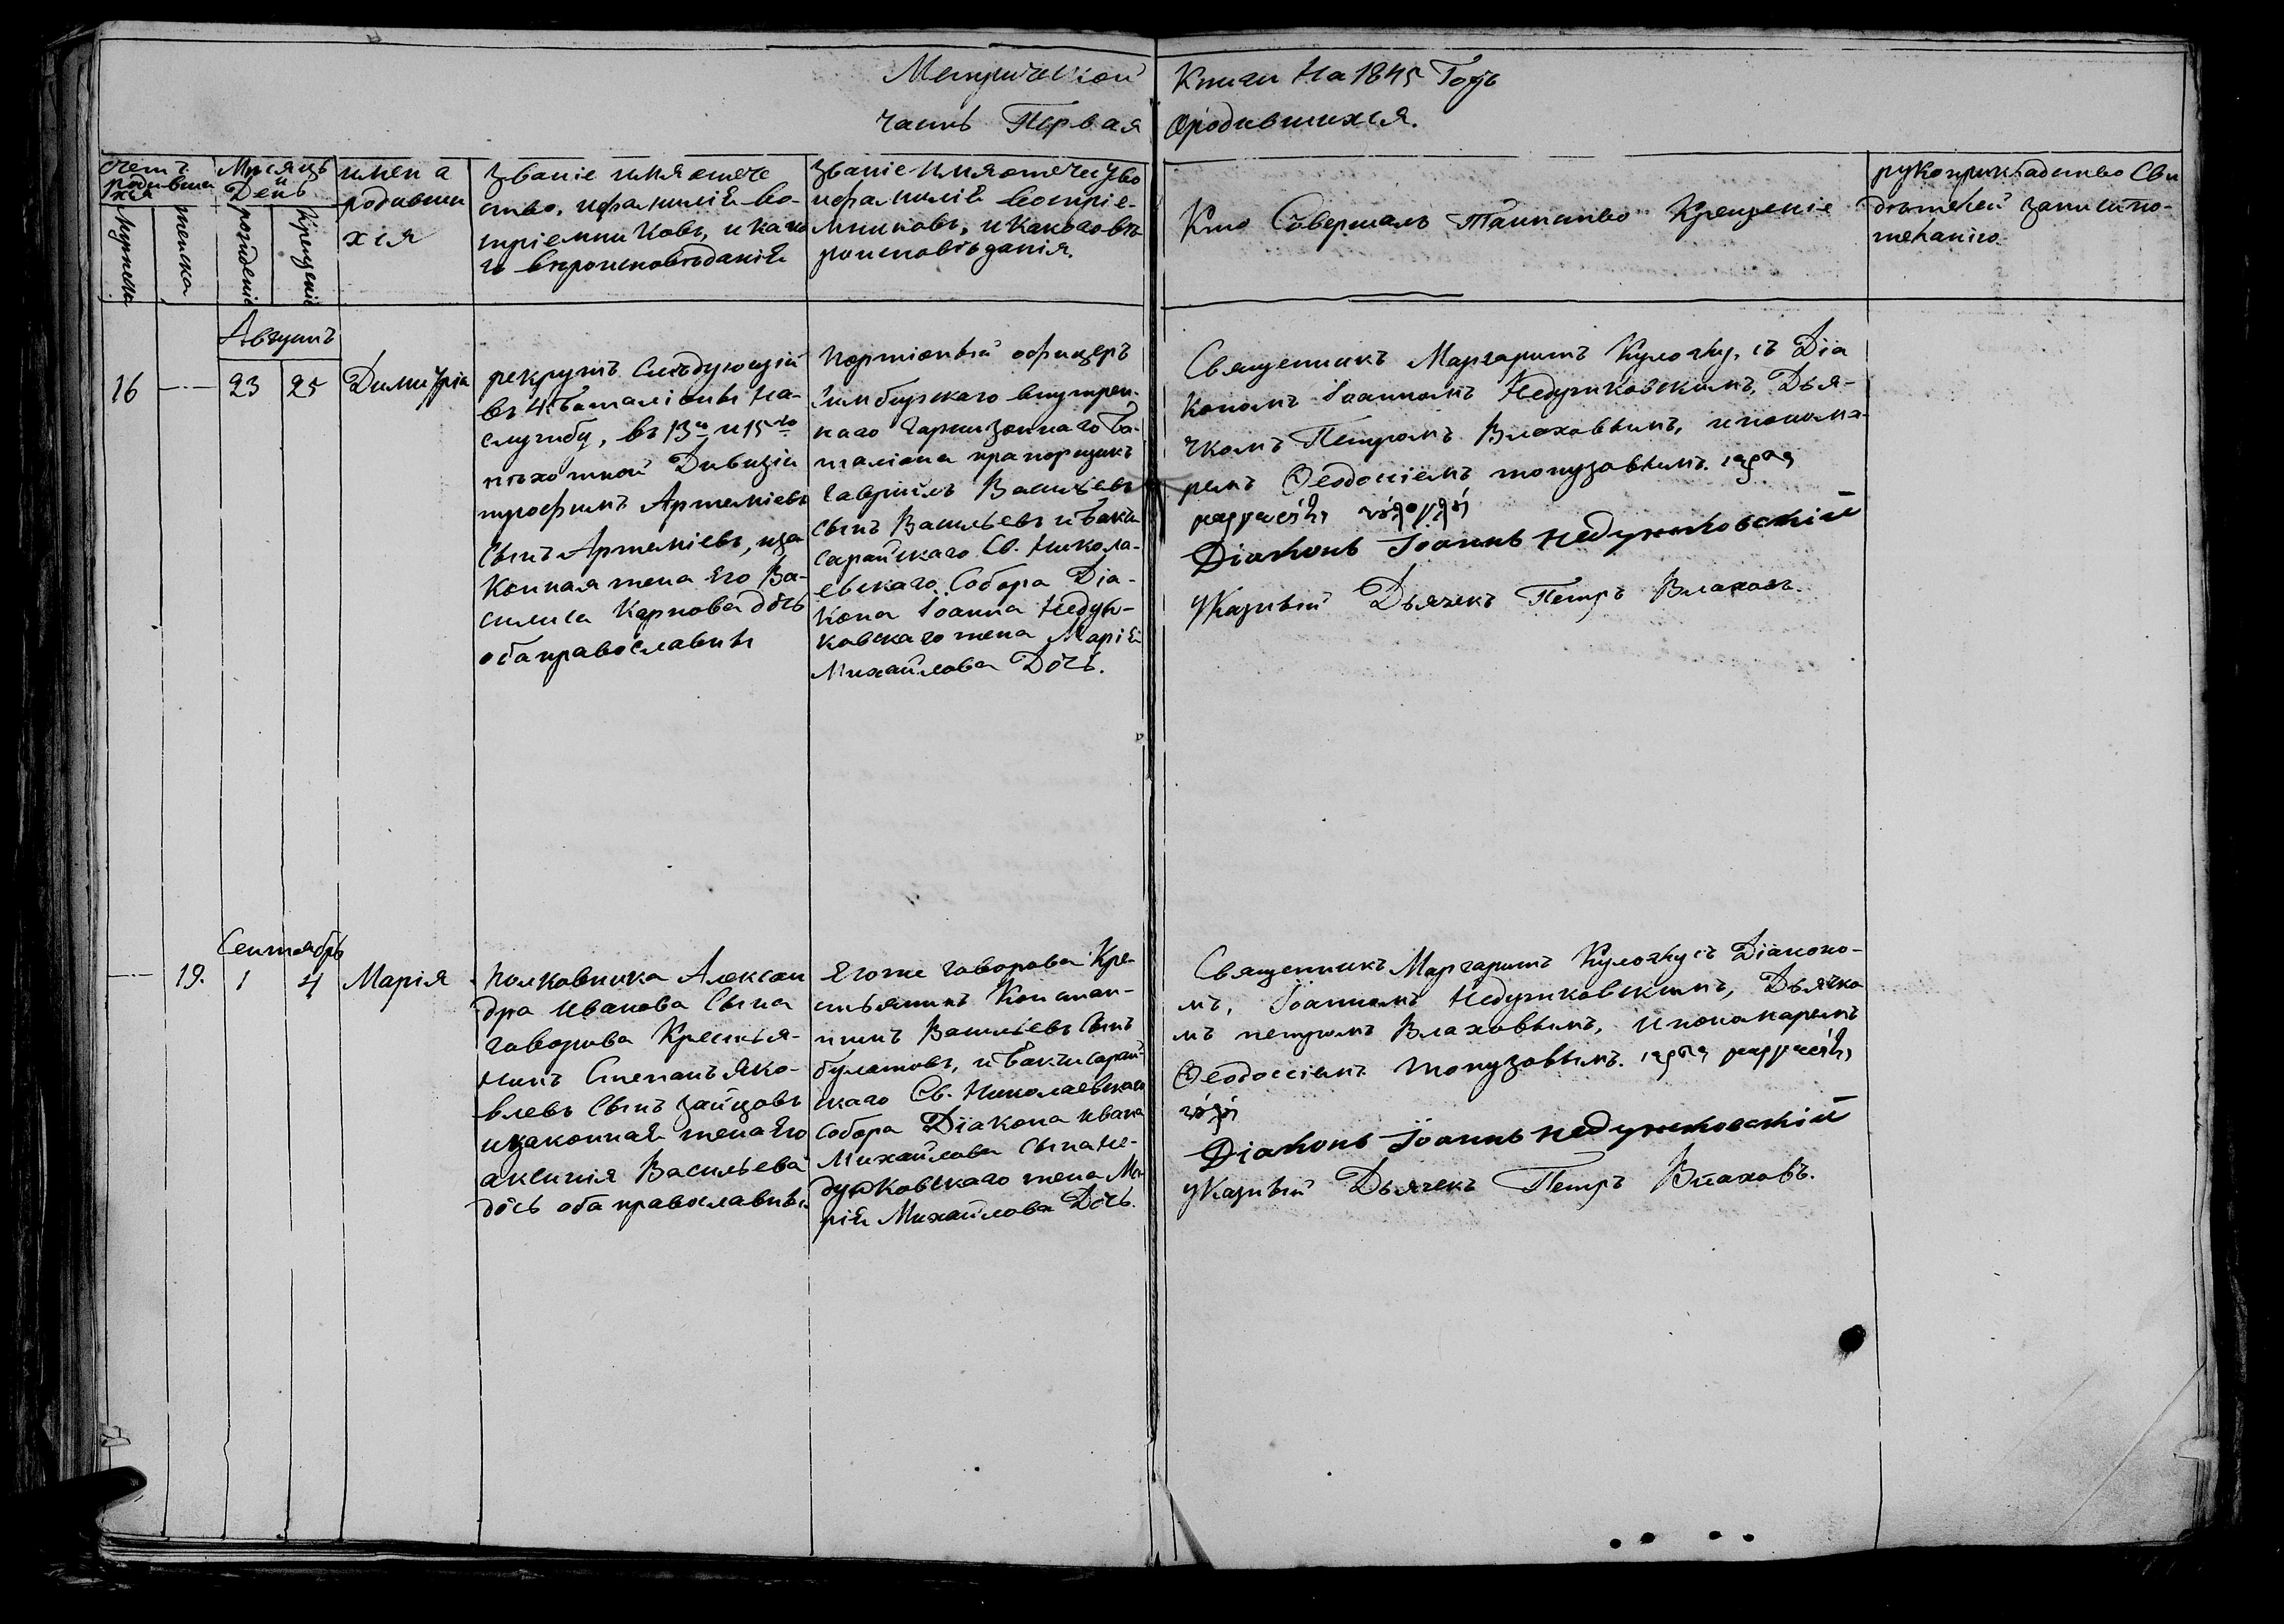 Метрической Книги На 1845 Годъ
часть Первая Ородившихся.
счетъ родивши хся
Мужеска
женска
Мѣсяцъ и День
рожденіе
Крещеніе
имена
родивши
хся
Званіе имя отече
ство, ифамилія во-
спріемниковъ, и како
го вѣроисповѣданія
Званіе имя отечеуво
ифамилія воспріе-
мниковъ, и какаговѣ
роисповѣданія.
Кто Совершалъ Таинство Крещеніе
рукоприкладство Сви
дѣтелей записи по-
желанію.
Августъ
16 — 23 25 Димитрія
рекрутъ Слѣдующій
въ 4. Баталіонъ На-
службу, въ 13й и 15ю
пѣхотной Дивизіи
трофимъ Артеміевъ
Сынъ Артеміевъ, иза
Конная жена Его Ва-
силиса Карпова дочь
оба православны
Портіоный офицеръ
Симбирскаго внутрен-
наго Гарнизоннаго Ба-
таліона прапорщикъ
Гавріилъ Васильевъ
сынъ Васильевъ и Бакчи
сарайскаго Св. Никола-
евскаго Собора Діа-
кона Іоанна Недуж-
ковскаго жена Марія
Михайлова Дочь.
Священникъ Маргаритъ Кулочку, съ Діа
кономъ Іоанномъ Недужковскимъ, Дья-
чкомъ Петромъ Влаховымъ, ипонома-
ремъ Ѳеодосіемъ топузовымъ.
Діаконъ Іоаннъ Недужковскій
Указный Дьячекъ Петръ Влаховъ.
Сентябрь
— 19. 1 4 Марія
Полковника Алексан
дра Иванова Сына
Говорова Крестья-
нинъ Степанъ Яко-
влевъ Сынъ Зайцовъ
изаконная жена Его
аксинія Васильева
дочь оба православны
Егоже Говорова Кре
стьянинъ Констан-
тинъ Васильевъ Сынъ
булатовъ, и Бакчисарай-
скаго Св. Николаевскаго
Собора Діакона Ивана
Михайлова Сына Не-
дужковскаго жена Ма
рія Михайлова Дочь.
Священникъ Маргаритъ Кулочку съ Діаконо-
мъ, Іоанномъ Недужковскимъ, Дьячко
мъ петромъ Влаховымъ, Ипономаремъ
Ѳеодосіемъ Топузовымъ.
Діаконъ Іоаннъ Недужковскій
Указный Дьячекъ Петръ Влаховъ.